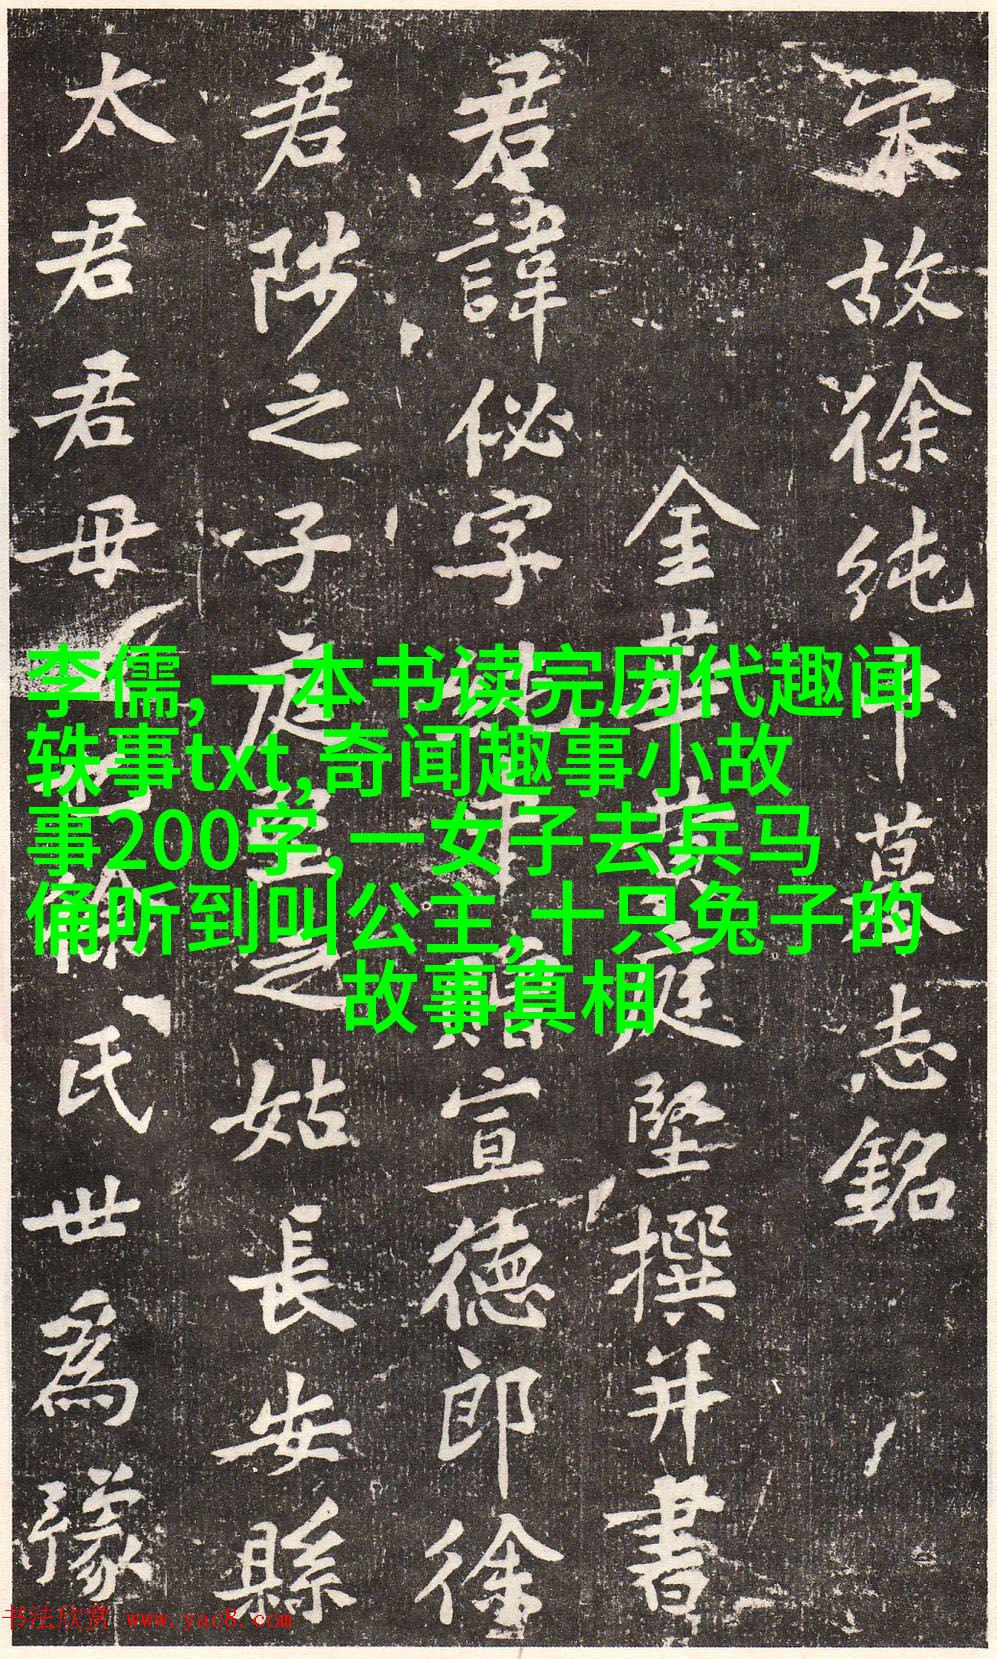 宋故徐纯中墓志銘
金華黄庭堅撰并書
君諱佖字純中贈宣德郎徐
君陟之子庭堅之姑長安縣
太君君母徐氏世為豫
李儒,一本书读完历代趣闻
轶事txt,奇闻趣事小故
事200字,一女子去兵马
俑听到叫公主,十只兔子的
故事真相
书法欣赏 www.yac8.com